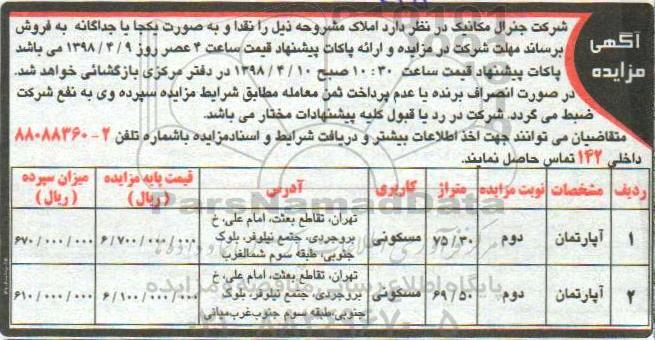 آگهی
مزایده
شرکت جنرال مکانیک در نظر دارد املاک مشروحه ذیل را نقدا و به صورت یکجا یا جداگانه به فروش
برساند مهلت شرکت در مزایده و ارائه پاکات پیشنهاد قیمت ساعت ۴ عصر روز ۱۳۹۸/۴/۹ می باشد
پاکات پیشنهاد قیمت ساعت ۱۰:۳۰ صبح ۱۳۹۸/۴/۱۰ در دفتر مرکزی بازگشائی خواهد شد.
در صورت انصراف برنده یا عدم پرداخت ثمن معامله مطابق شرایط مزایده سپرده وی به نفع شرکت
ضبط می گردد. شرکت در رد یا قبول کلیه پیشنهادات مختار می باشد.
متقاضیان می توانند جهت اخذ اطلاعات بیشتر و دریافت شرایط و اسناد مزایده باشماره تلفن ۲-۸۸۰۸۸۳۶۰
داخلی ۱۴۲ تماس حاصل نمایند.
ردیف مشخصات نوبت مزایده متراژ کاربری آدرس قیمت پایه مزایده (ریال) میزان سپرده (ریال)
۱ آپارتمان دوم ۷۵/۳۰ مسکونی تهران، تقاطع بعثت، امام علی، خ
بروجردی، جتمع نیلوفر، بلوک
جنوبی، طبقه سوم شمالغرب
۶/۷۰۰/۰۰۰/۰۰۰ ۶۷۰/۰۰۰/۰۰۰
۲ آپارتمان دوم ۶۹/۵۰ مسکونی تهران، تقاطع بعثت، امام علی، خ
بروجردی، جتمع نیلوفر، بلوک
جنوبی، طبقه سوم جنوب غرب میانی
۶/۱۰۰/۰۰۰/۰۰۰ ۶۱۰/۰۰۰/۰۰۰
ParsNamadData
پایگاه اطلاع رسانی مناقصه و مزایده